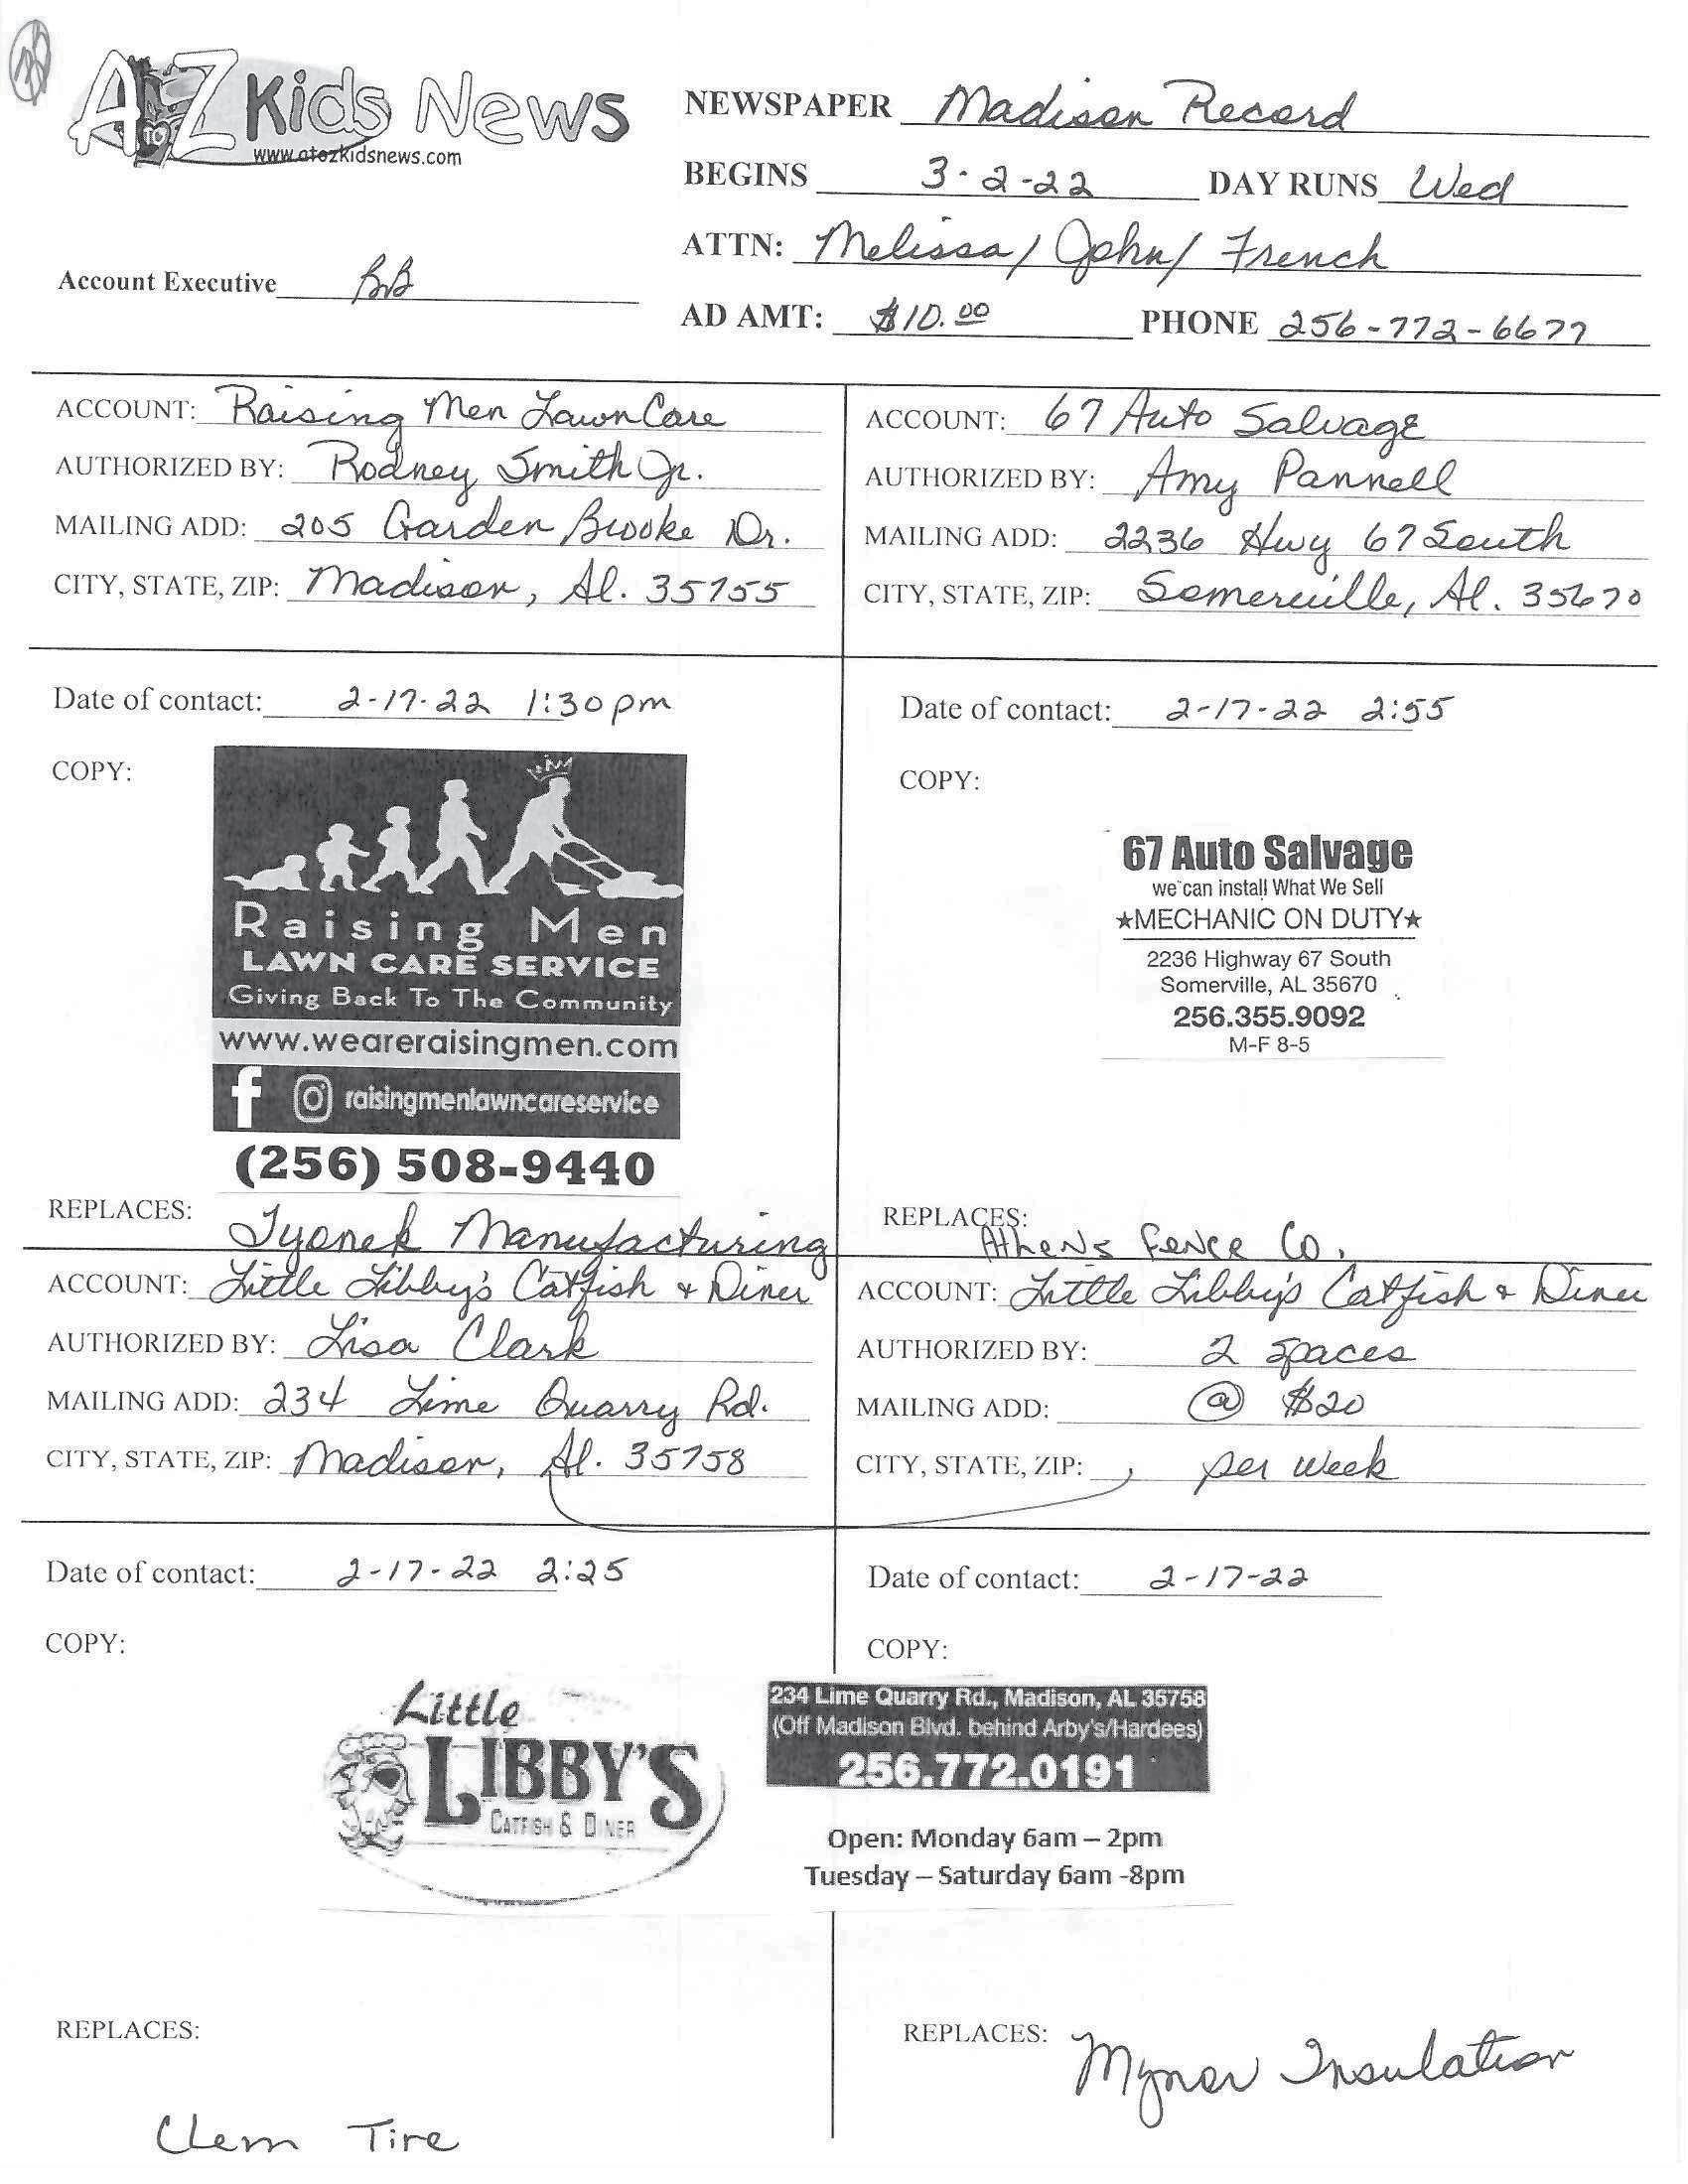 A TO Z Kids News
www.atozkidsnews.com
NEWSPAPER Madison Record
BEGINS 3-2-22 DAY RUNS Wed
ATTN: Melissa/ John/ French
Account Executive BB
AD AMT: $10.00 PHONE 256-772-6677
ACCOUNT: Raising Men Lawn Care
AUTHORIZED BY: Rodney Smith Jr.
MAILING ADD: 205 Garden Brooke Dr.
CITY, STATE, ZIP: Madison, Al. 35755
ACCOUNT: 67 Auto Salvage
AUTHORIZED BY: Amy Pannell
MAILING ADD: 2236 Hwy 67 South
CITY, STATE, ZIP: Somerville, Al. 35670
Date of contact: 2-17-22 1:30 pm
COPY:
Raising Men
LAWN CARE SERVICE
Giving Back To The Community
www.weareraisingmen.com
f raisingmenlawncareservice
(256) 508-9440
REPLACES: Tyonek Manufacturing
Date of contact: 2-17-22 2:55
COPY:
67 Auto Salvage
we can install What We Sell
★MECHANIC ON DUTY★
2236 Highway 67 South
Somerville, AL 35670
256.355.9092
M-F 8-5
REPLACES: Athens Fence Co.
ACCOUNT: Little Libby's Catfish & Diner
AUTHORIZED BY: Lisa Clark
MAILING ADD: 234 Lime Quarry Rd.
CITY, STATE, ZIP: Madison, Al. 35758
ACCOUNT: Little Libby's Catfish & Diner
AUTHORIZED BY: 2 spaces
MAILING ADD: @ $20
CITY, STATE, ZIP: per week
Date of contact: 2-17-22 2:25
COPY:
Little
LIBBY'S
CATFISH & DINER
Date of contact: 2-17-22
COPY:
234 Lime Quarry Rd., Madison, AL 35758
(Off Madison Blvd. behind Arby's/Hardees)
256.772.0191
Open: Monday 6am – 2pm
Tuesday – Saturday 6am -8pm
REPLACES:
Clem Tire
REPLACES: Mynor Insulation